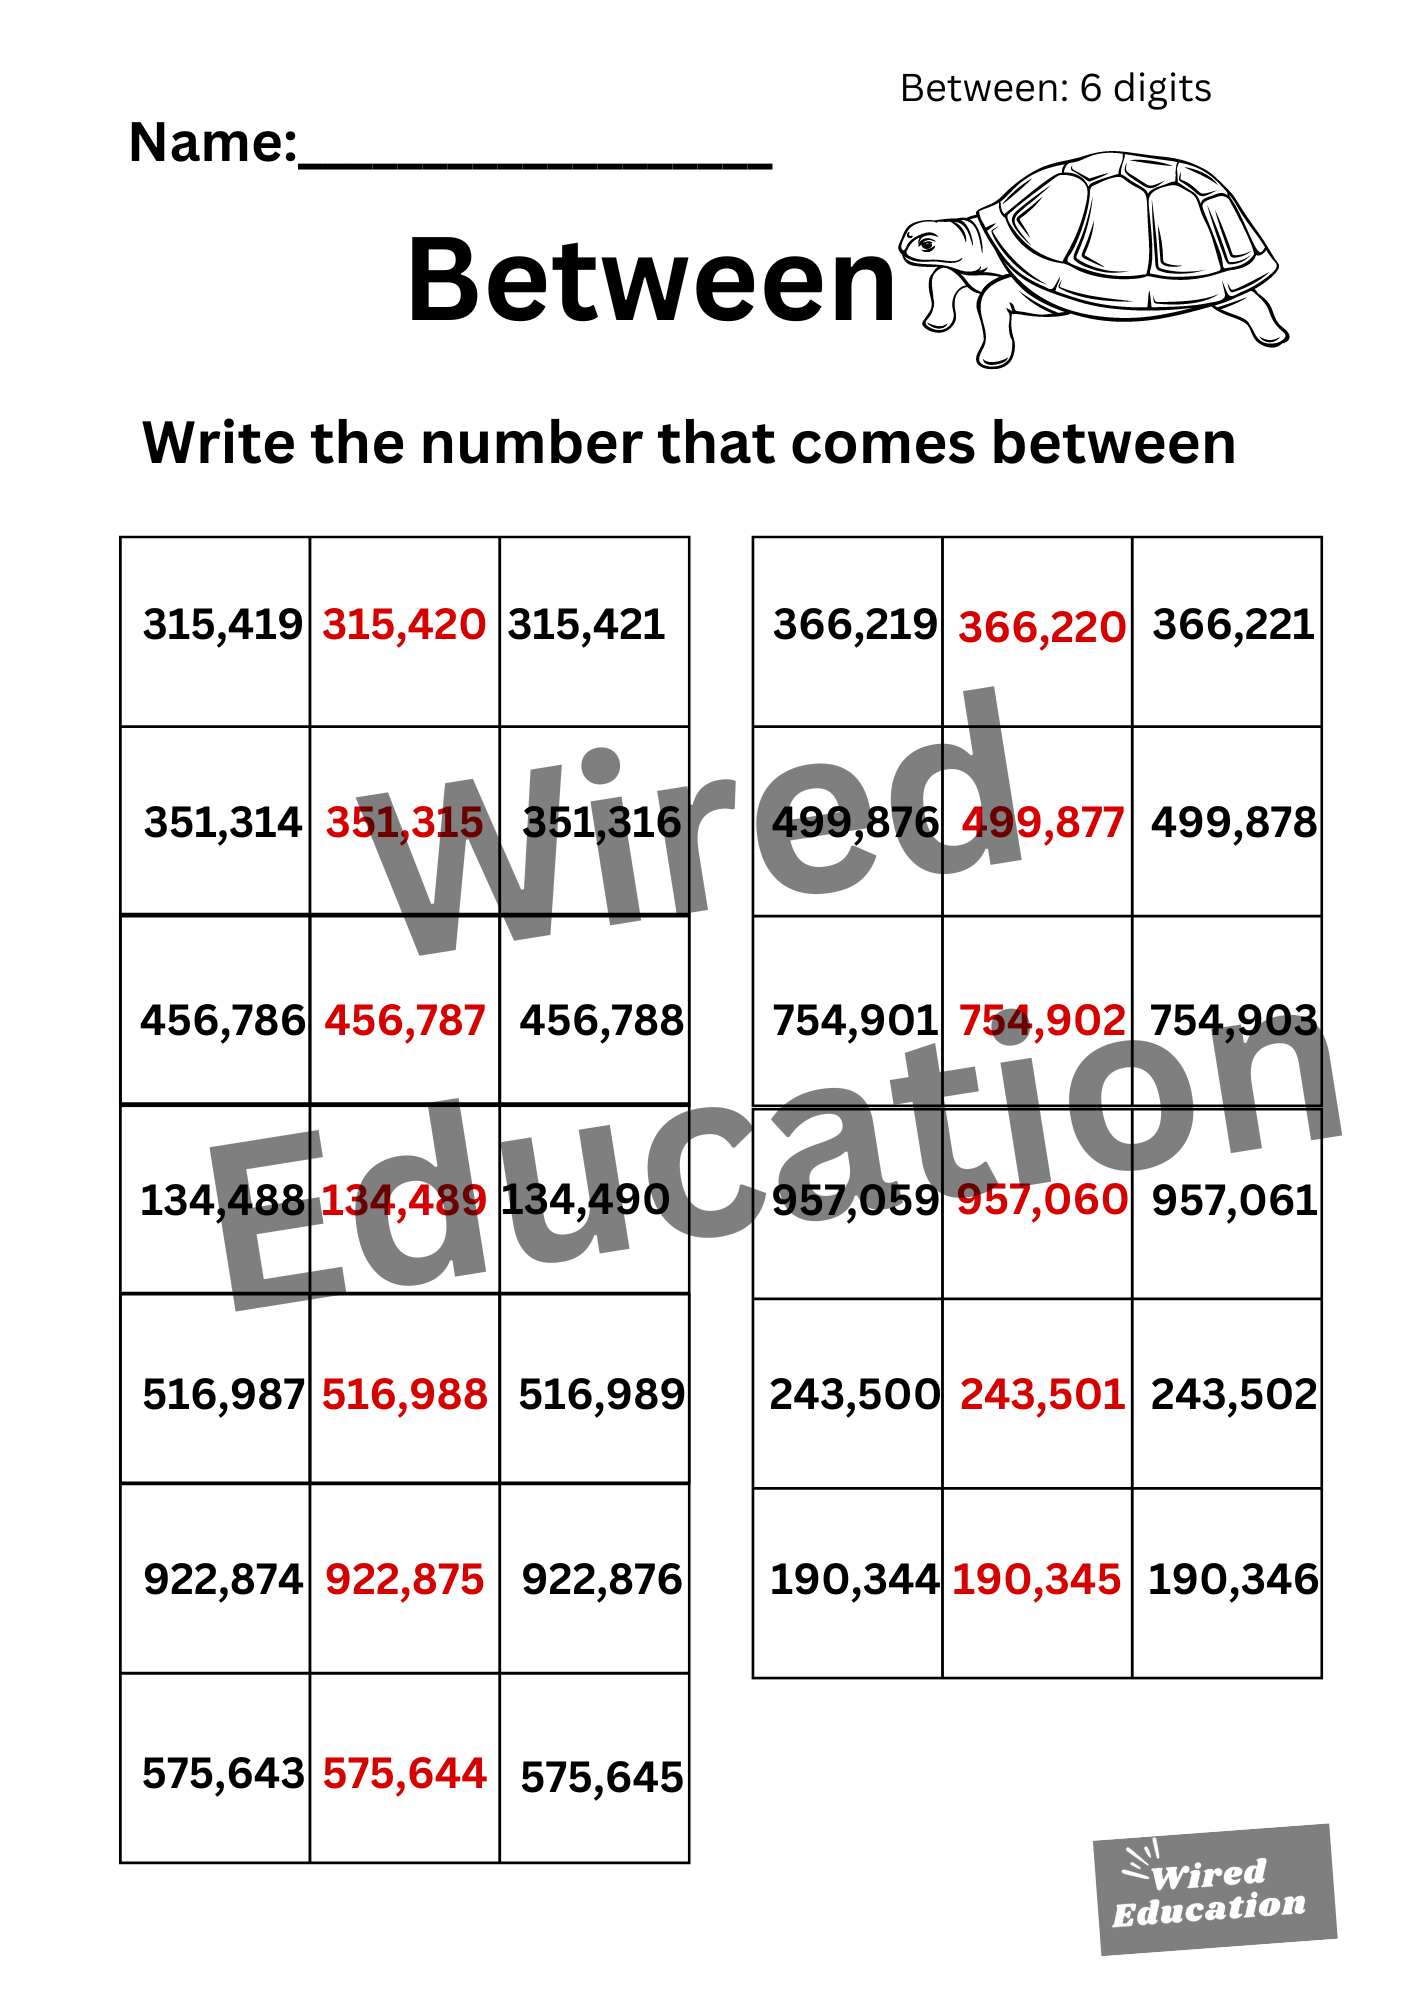 Between: 6 digits
Name:___________________
Between
Write the number that comes between
315,419 315,420 315,421
351,314 351,315 351,316
456,786 456,787 456,788
134,488 134,489 134,490
516,987 516,988 516,989
922,874 922,875 922,876
575,643 575,644 575,645
366,219 366,220 366,221
499,876 499,877 499,878
754,901 754,902 754,903
957,059 957,060 957,061
243,500 243,501 243,502
190,344 190,345 190,346
Wired
Education
Wired
Education